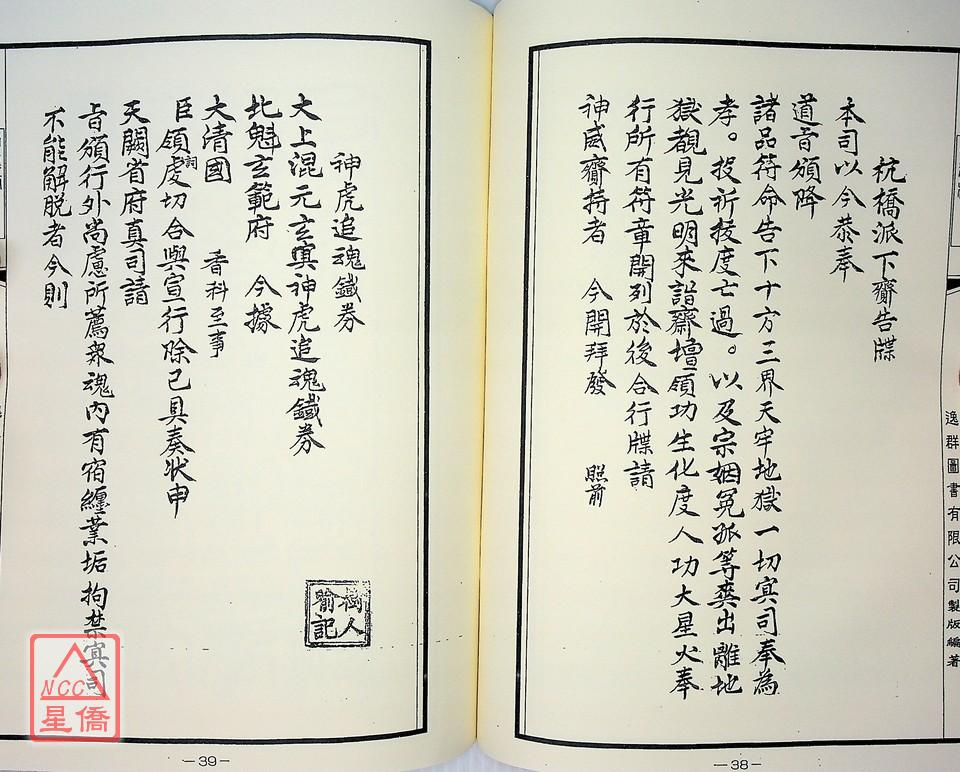 杭橋派下齋告牒
本司以今恭奉
道旨頒降
諸品符命告下十方三界天牢地獄一切冥司奉為
孝。投祈拔度亡過。以及宗姻冤孤等爽出離地
獄覩見光明來詣齋壇領功生化度人功大星火奉
行所有符章開列於後合行牒請
神威齎持者　今開拜發　照前
逸群圖書有限公司製版編著
—38—
神虎追魂鐵券
大上混元玄冥神虎追魂鐵券
北魁玄範府　今據
大清國　香科至事
臣領詞虔切合與宣行除已具奏狀申
天闕省府真司請
旨頒行外尚慮所薦衆魂內有宿纏業垢拘禁冥司
不能解脫者今則
樹人
喻記
—39—
NCC
星僑